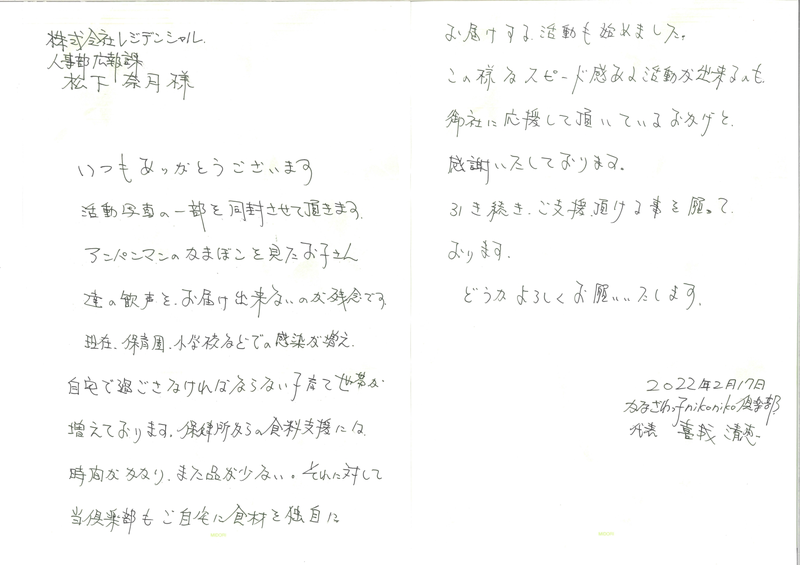 株式会社レジデンシャル
人事部広報課
松下 奈月 様
いつもありがとうございます
活動写真の一部を同封させて頂きます。
アンパンマンのかまぼこを見たお子さん
達の歓声を、お届け出来ないのが残念です
現在、保育園、小学校などでの感染が増え、
自宅で過ごさなければならない子育て世帯が
増えております。保健所からの食料支援には、
時間がかかり、また品が少ない。それに対して
当倶楽部もご自宅に食材を独自に
お届けする活動も始めました。
この様なスピード感ある活動が出来るのも、
御社に応援して頂いているおかげと、
感謝いたしております。
引き続き、ご支援頂ける事を願って、
おります。
どうかよろしくお願いいたします。
2022年2月17日
かなざわっ子nikoniko倶楽部
代表 喜成 清恵